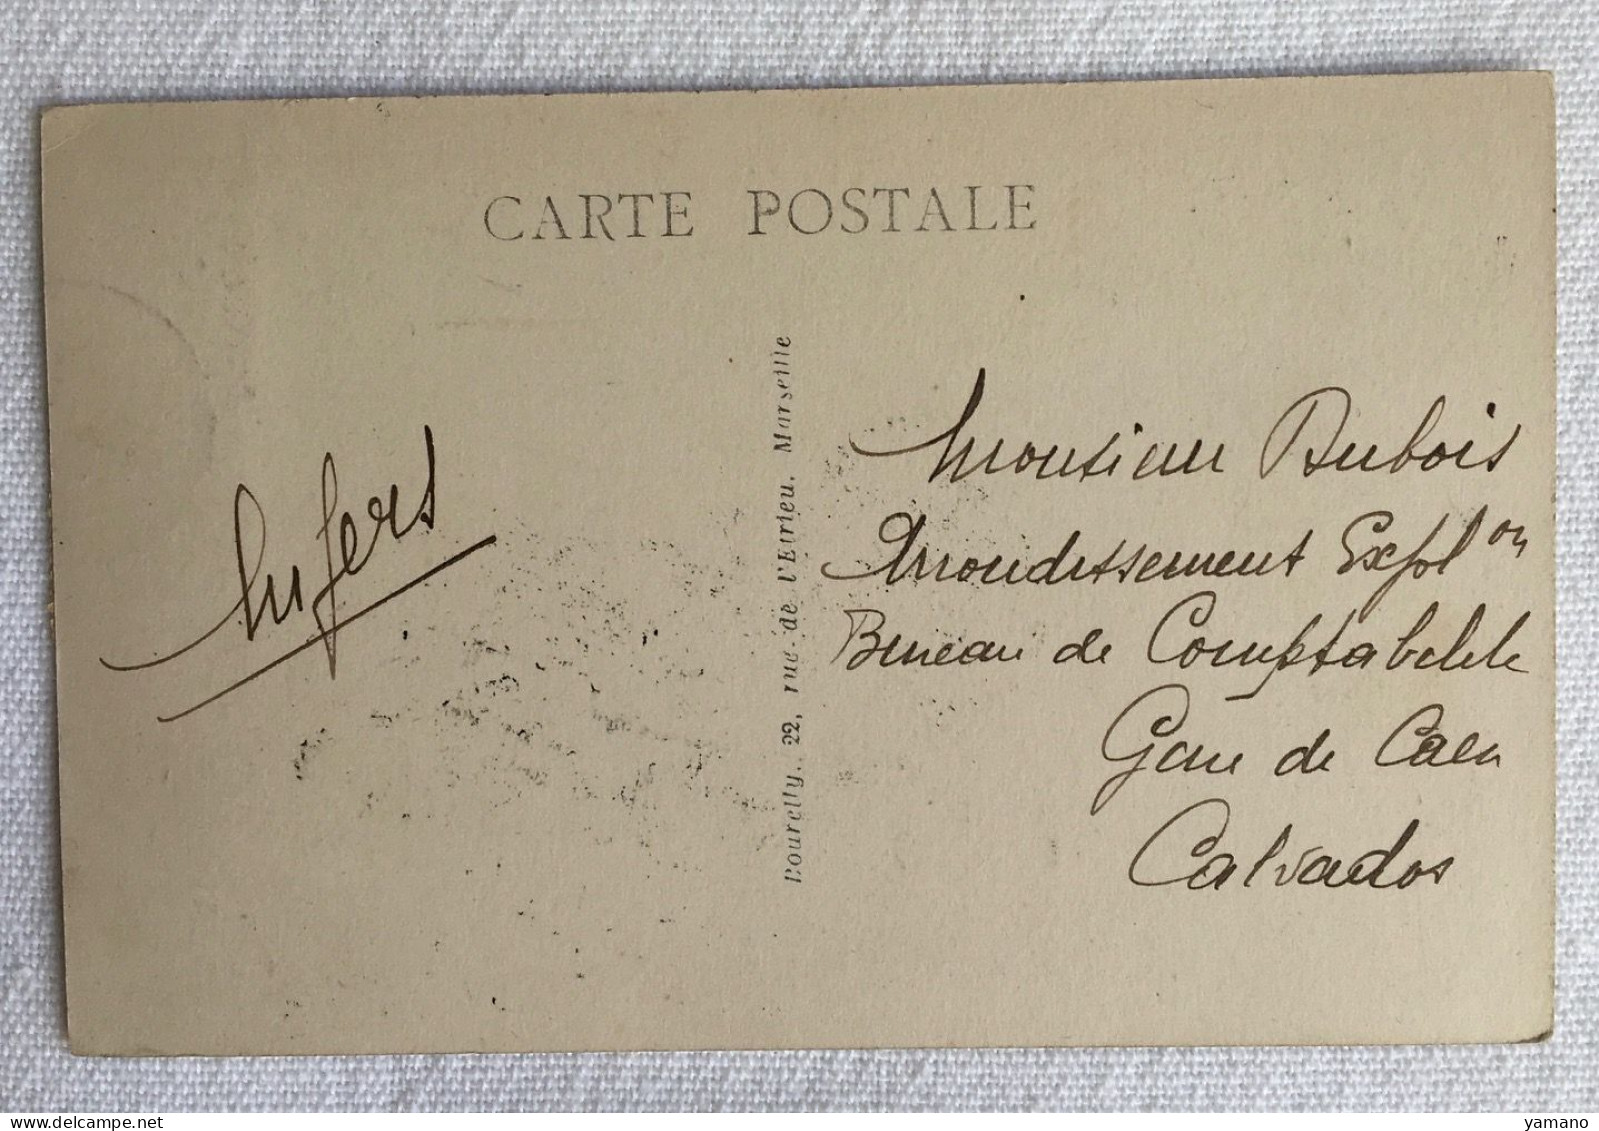 CARTE POSTALE
Bourelly. 22, rue de l'Etrieu. Marseille
Monsieur Dubois
Arrondissement Expl on
Bureau de Comptabilité
Gare de Caen
Calvados
delcampe.net
yamano